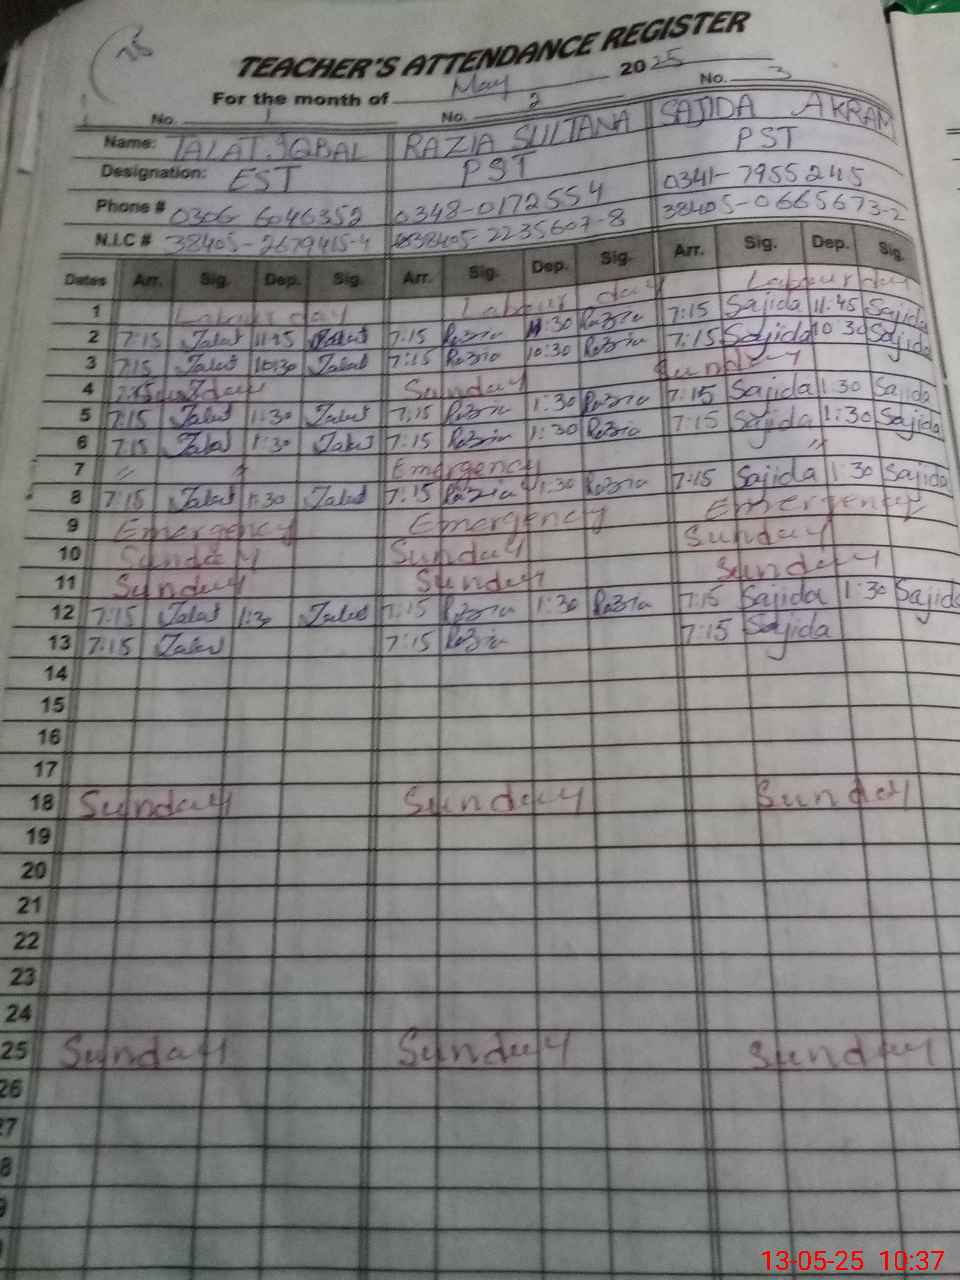 25
TEACHER'S ATTENDANCE REGISTER
For the month of May 2025
No. 1 No. 2 No. 3
Name: TALAT IQBAL RAZIA SULTANA SAJIDA AKRAM
Designation: EST PST PST
Phone # 0306 6046352 0348-0172554 0341-7955245
N.I.C # 38405-2679415-4 38405-2235607-8 38405-0665673-2
Dates Arr. Sig. Dep. Sig. Arr. Sig. Dep. Sig. Arr. Sig. Dep. Sig.
1 Labour day Labour day Labour day
2 7:15 Talat 11:45 Talat 7:15 Razia 11:30 Razia 7:15 Sajida 11:45 Sajida
3 7:15 Talat 10:30 Talat 7:15 Razia 10:30 Razia 7:15 Sajida 10 30 Sajida
4 Sunday Sunday Sunday
5 7:15 Talat 1:30 Talat 7:15 Razia 1:30 Razia 7:15 Sajida 1:30 Sajida
6 7:15 Talat 1:30 Talat 7:15 Razia 1:30 Razia 7:15 Sajida 1:30 Sajida
7 " " Emergency "
8 7:15 Talat 1:30 Talat 7:15 Razia 1:30 Razia 7:15 Sajida 1:30 Sajida
9 Emergency Emergency Emergency
10 Sunday Sunday Sunday
11 Sunday Sunday Sunday
12 7:15 Talat 1:30 Talat 7:15 Razia 1:30 Razia 7:15 Sajida 1:30 Sajida
13 7:15 Talat 7:15 Razia 7:15 Sajida
14
15
16
17
18 Sunday Sunday Sunday
19
20
21
22
23
24
25 Sunday Sunday Sunday
26
27
8
9
13-05-25 10:37